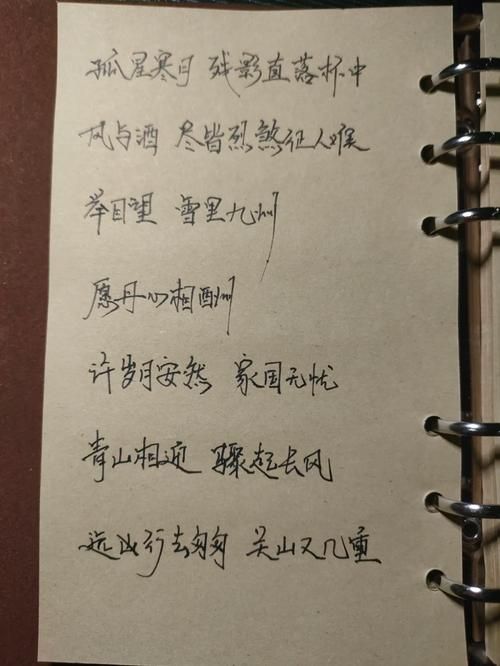 孤星寒月 残影直落杯中
风与酒 尽皆烈煞征人喉
举目望 雪里九州
愿丹心相酬
许岁月安然 家国无忧
青山相迎 骤起长风
远山行去匆匆 关山又几重